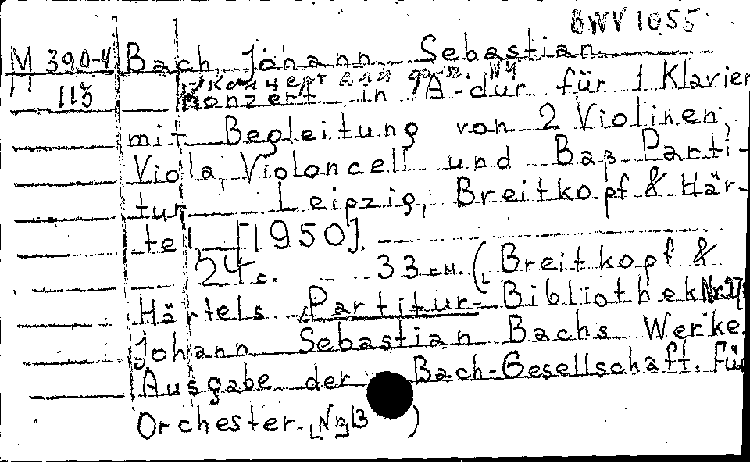 BWV 1055
M 390-4 Bach, Johann Sebastian
113 Konzert in A-dur für 1 Klavier
mit Begleitung von 2 Violinen,
Viola, Violoncell und Bas. Parti-
tur. Leipzig, Breitkopf & Här-
tel [1950].
24 c. 33 см. (Breitkopf &
Härtels Partitur-Bibliothek
Johann Sebastian Bachs Werke.
Ausgabe der Bach-Gesellschaft. Für
Orchester.